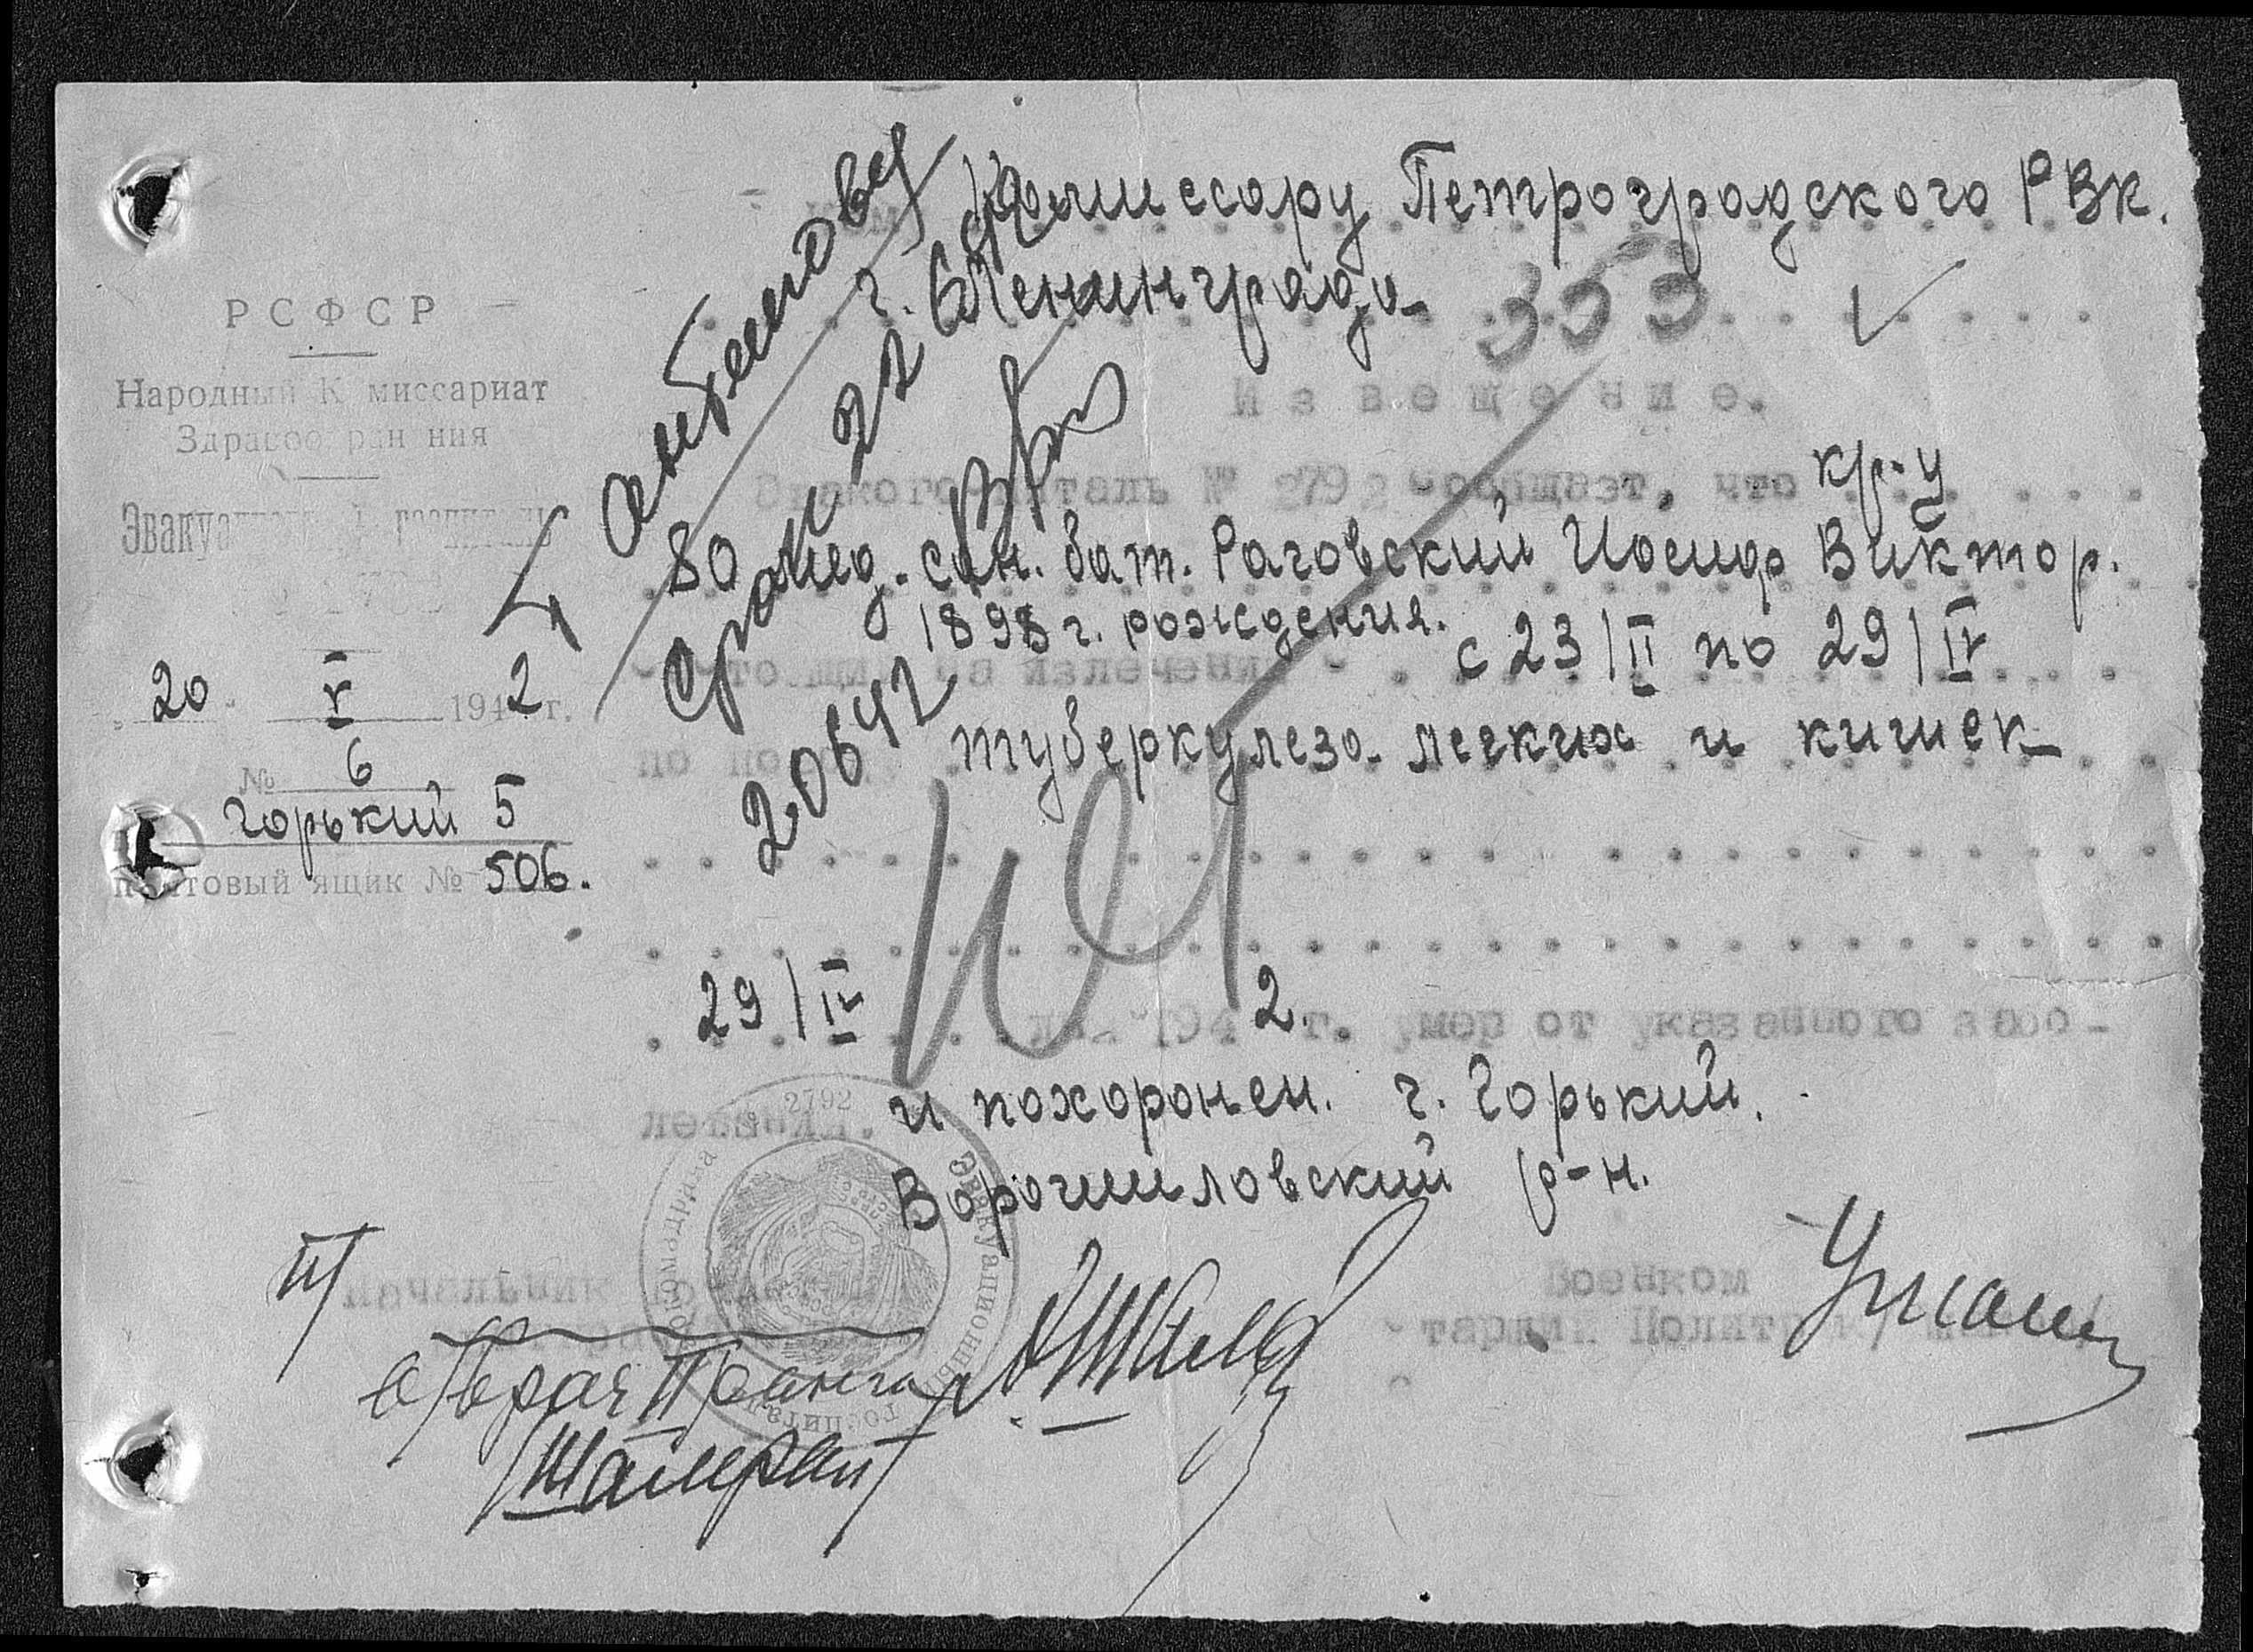 РСФСР
Народный Комиссариат
Здравоохранения
Эвакуационный госпиталь
20 V 1942 г.
№ 6
Горький 5
почтовый ящик № 506.
Комиссару Петроградского РВК.
г. Ленинграда
353
Извещение.
Эвакогоспиталь № 2792 сообщает, что кр-у
80 мед. сан. бат. Раговский Иосиф Виктор.
1898 г. рождения.
состоящий на излечении с 23/II по 29/IV
по поводу туберкулеза легких и кишек
29/IV 1942 г. умер от указанного забо-
левания. и похоронен. г. Горький.
Ворошиловский р-н.
Срок 22
20642
Начальник
в/врач II ранга
Военком
Старший Политрук
2792
Эвакуационный госпиталь